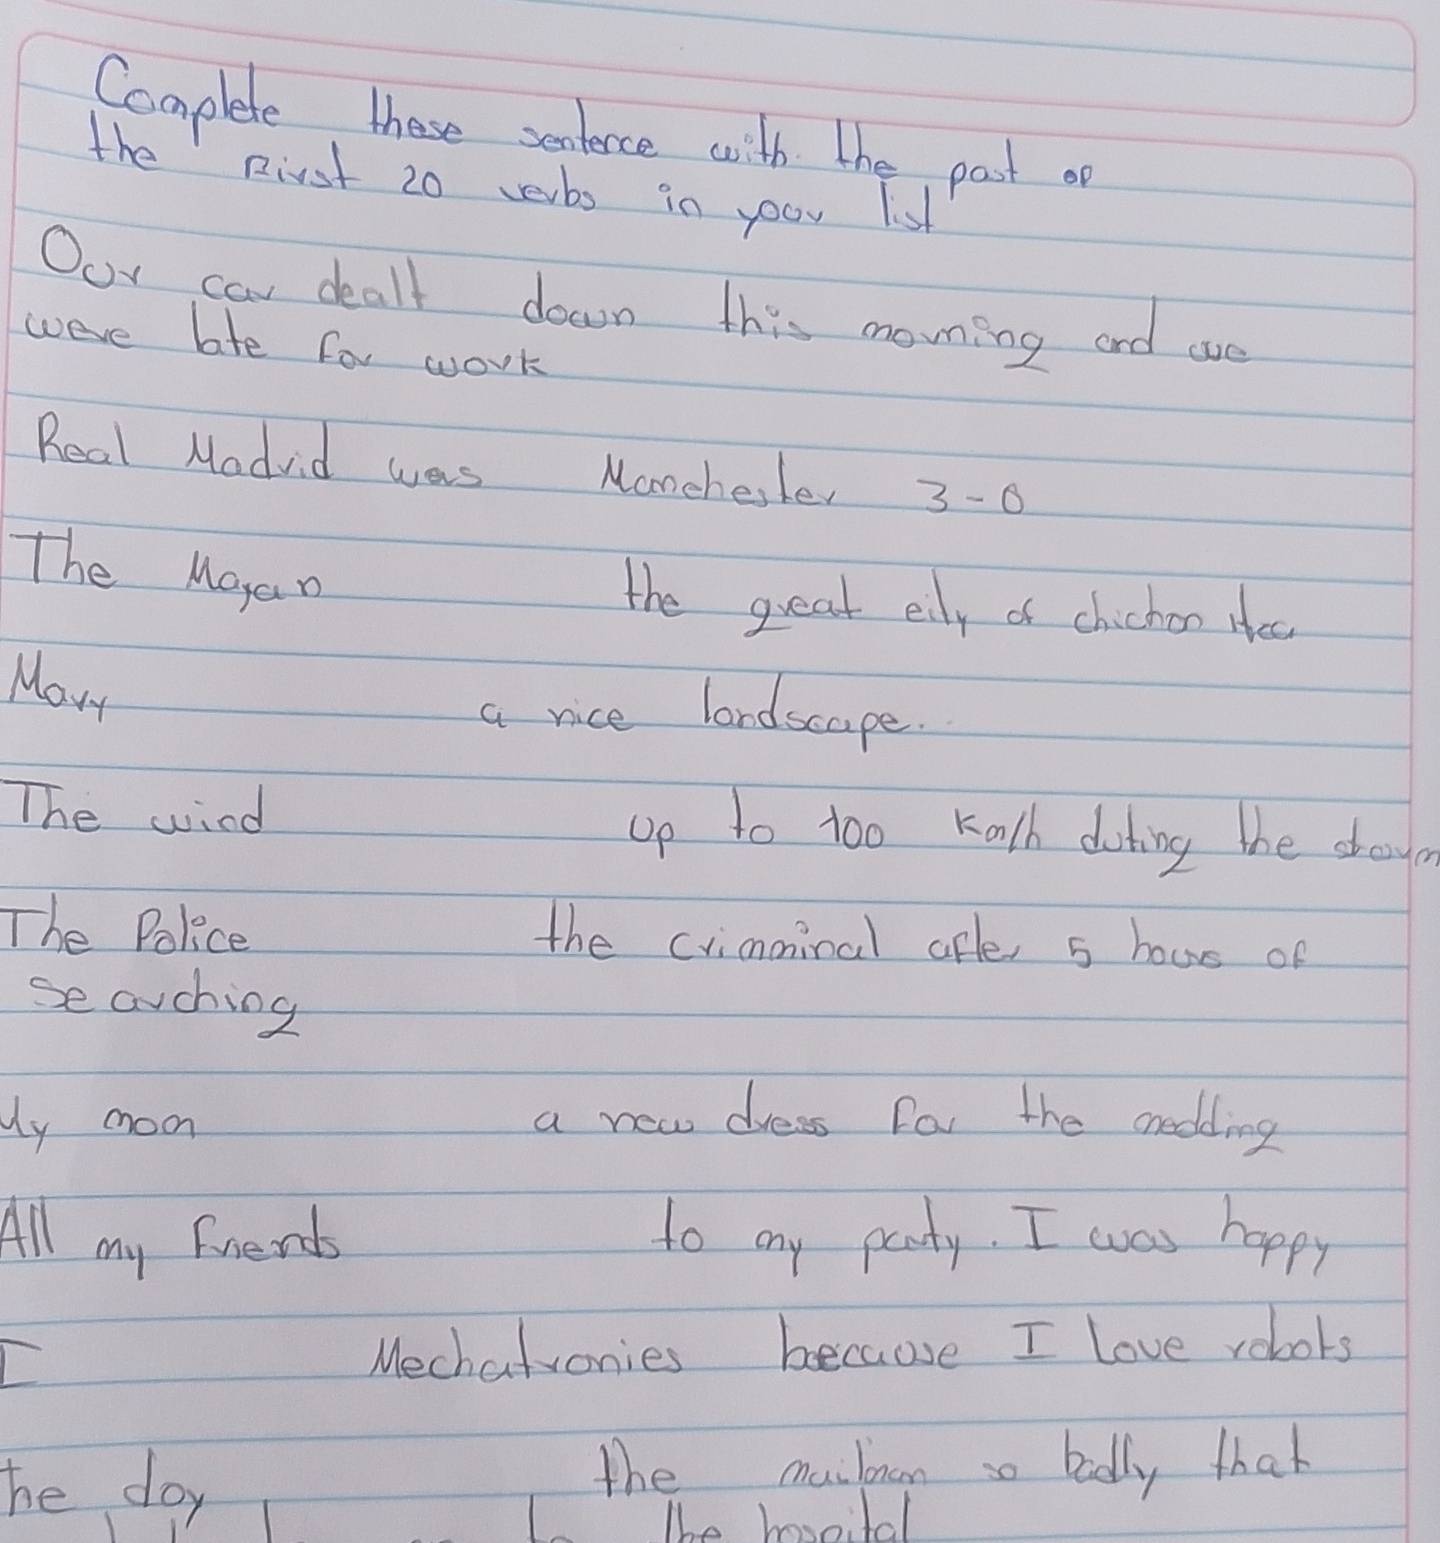 Complete these sentence with the past of
the First 20 verbs in your list
Our car dealt down this morning and we
were late for work
Real Madrid was Manchester 3-0
The Mayan the great eily of chichen itea
Mary a nice landscape.
The wind up to 100 Km/h duting the storm
The Police the crimminal after 5 hours of
searching
My mom a new dress For the medding
All my Friends to my party. I was happy
I Mechatronies because I Love robots
The doy the mailman so badly that
to the hospital